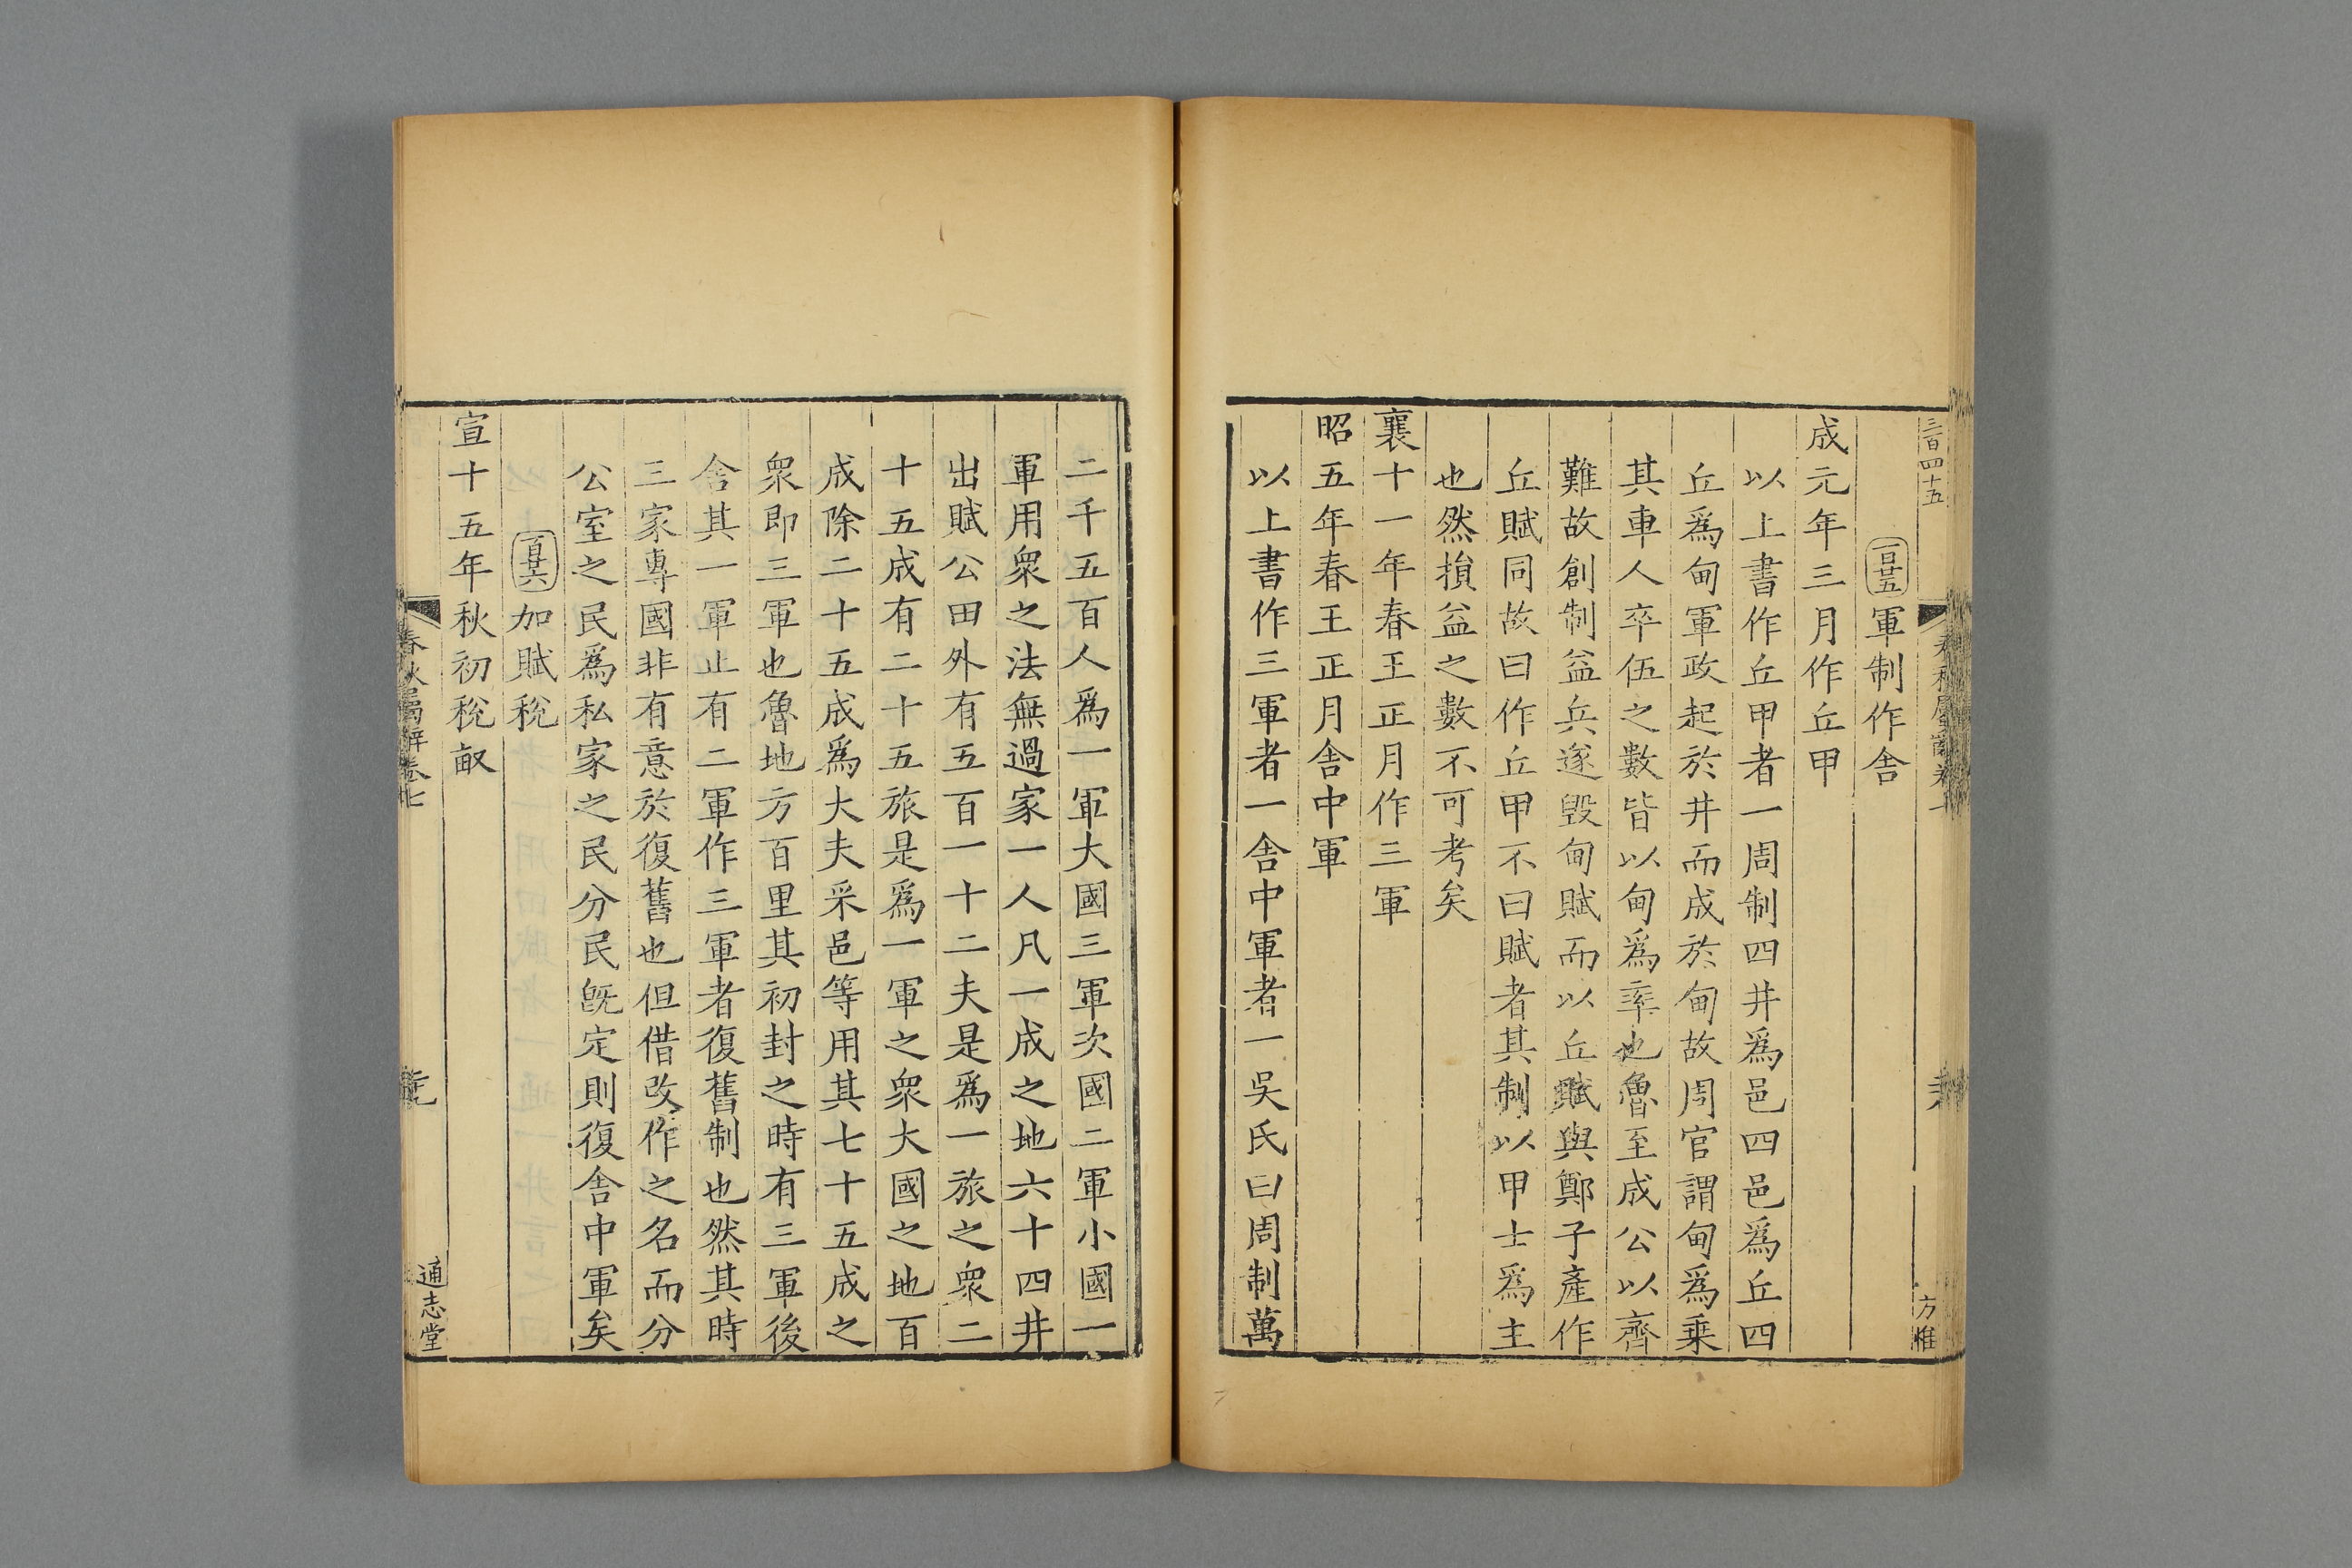 三百四十五
方惟
一百廿五軍制作舍
成元年三月作丘甲
以上書作丘甲者一周制四井爲邑四邑爲丘四
丘爲甸軍政起於井而成於甸故周官謂甸爲乗
其車人卒伍之數皆以甸爲率也魯至成公以齊
難故創制益兵遂毀甸賦而以丘賦與鄭子產作
丘賦同故曰作丘甲不曰賦者其制以甲士爲主
也然損益之數不可考矣
襄十一年春王正月作三軍
昭五年春王正月舍中軍
以上書作三軍者一舍中軍者一吳氏曰周制萬
二千五百人爲一軍大國三軍次國二軍小國一
軍用衆之法無過家一人凡一成之地六十四井
出賦公田外有五百一十二夫是爲一旅之衆二
十五成有二十五旅是爲一軍之衆大國之地百
成除二十五成爲大夫采邑等用其七十五成之
衆即三軍也魯地方百里其初封之時有三軍後
舍其一軍止有二軍作三軍者復舊制也然其時
三家專國非有意於復舊也但借改作之名而分
公室之民爲私家之民分民旣定則復舍中軍矣
百廿六加賦稅
宣十五年秋初稅畝
春秋屬辭卷七
通志堂